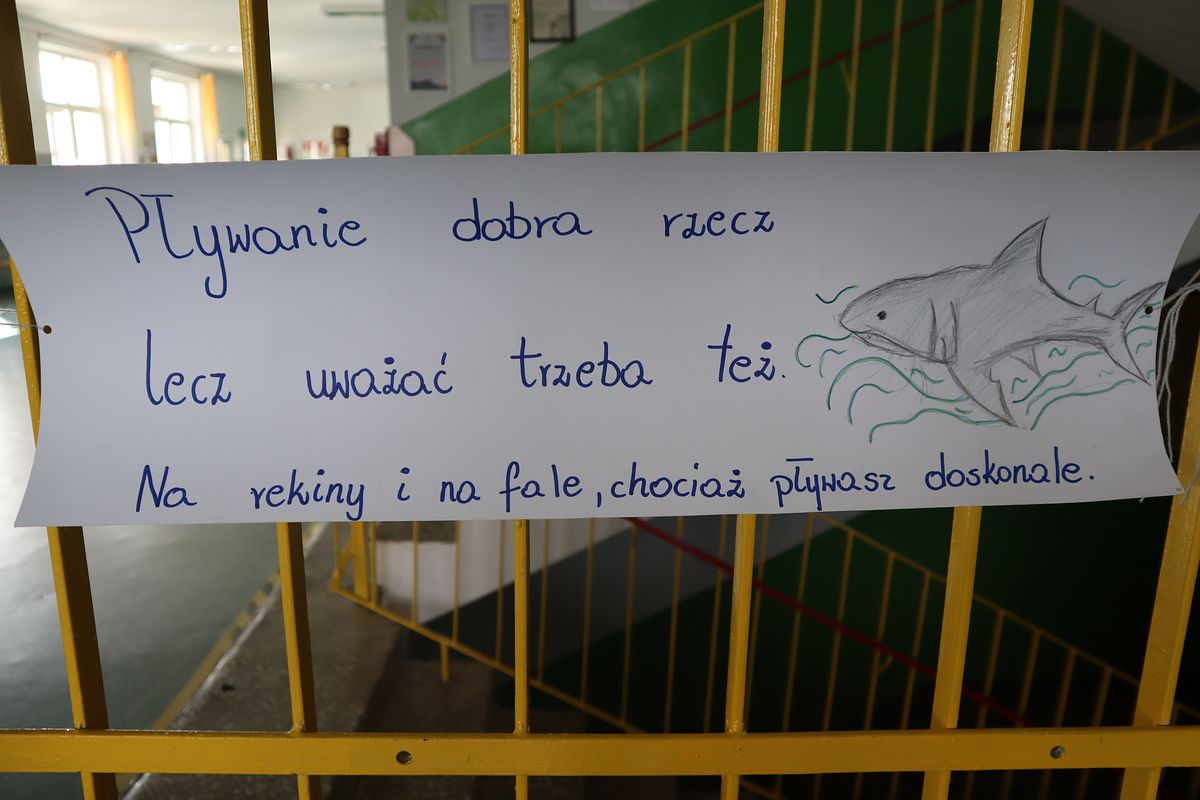 Pływanie dobra rzecz
lecz uważać trzeba też.
Na rekiny i na fale, chociaż pływasz doskonale.